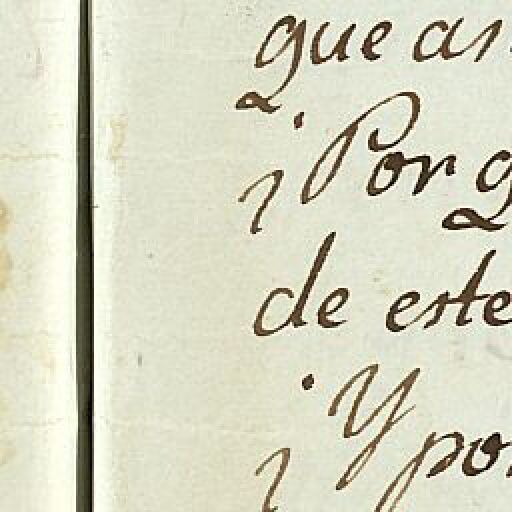 que as
¿Por q
de este
¿Y por